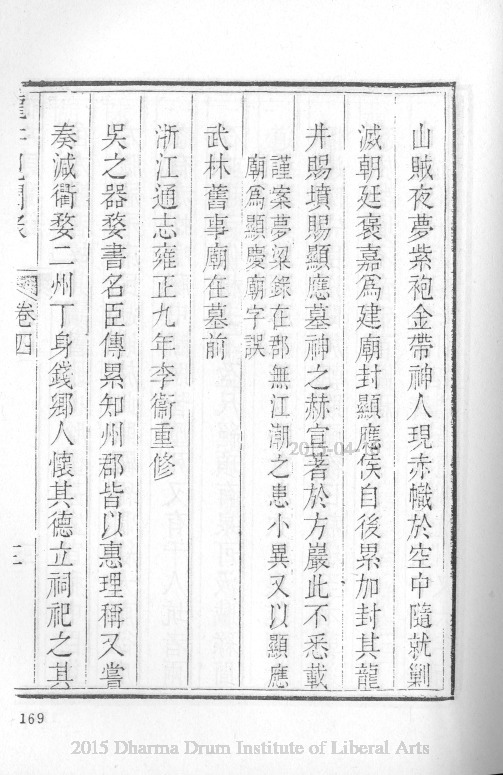 山賊夜夢紫袍金帶神人現赤幟於空中隨就剿
滅朝廷褒嘉爲建廟封顯應侯自後累加封其龍
井賜墳賜顯應墓神之赫宣著於方巖此不悉載
謹案夢粱錄在郡無江潮之患小異又以顯應
廟爲顯慶廟字誤
武林舊事廟在墓前
浙江通志雍正九年李衞重修
吳之器婺書名臣傳累知州郡皆以惠理稱又嘗
奏減衢婺二州丁身錢鄉人懷其德立祠祀之其
卷四
2015-04-1
169
2015 Dharma Drum Institute of Liberal Arts